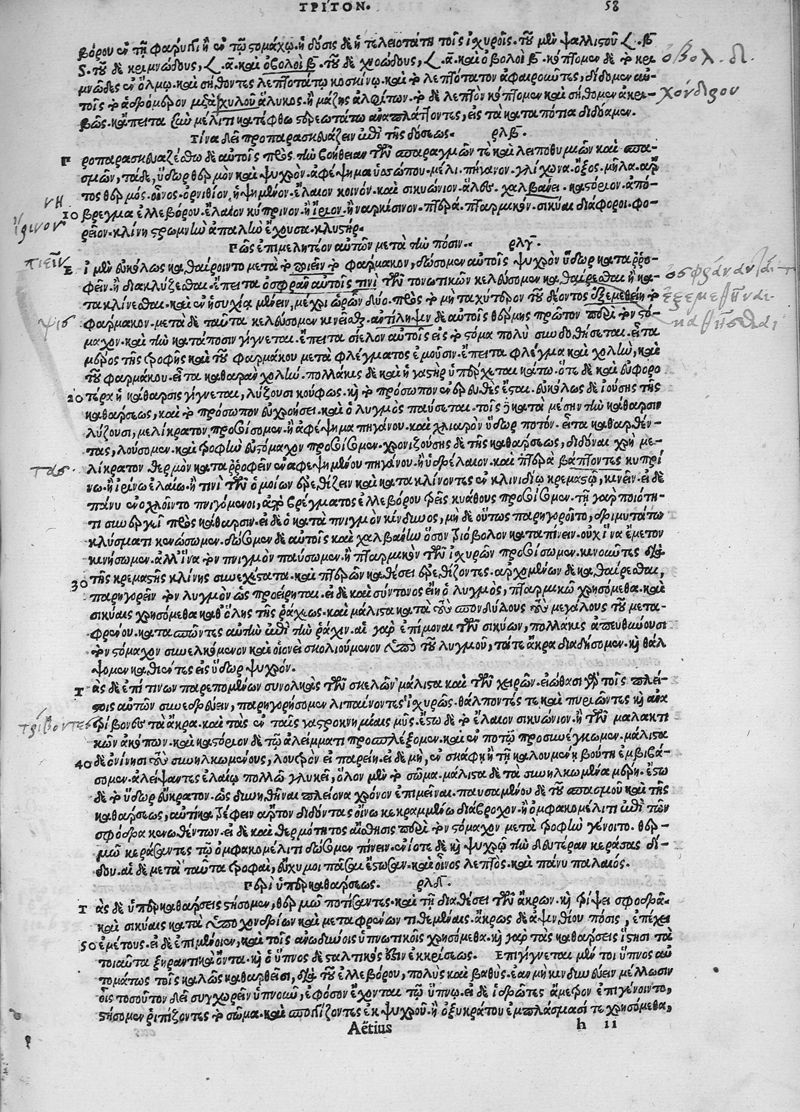 ΤΡΙΤΟΝ. 58
βόρου ἐν τῇ φάρυγγι ἢ ἐν τῷ στομάχῳ. ἡ δόσις δὲ ἡ τελειοτάτη τοῖς ἰσχυροῖς. τοῦ μὲν ψαλλιστοῦ
τοῦ δὲ κριμνώδους, καὶ ὀβολοὶ β. τοῦ δὲ χνοώδους, α. καὶ ὀβολοὶ β. κόπτομεν δὲ τὸ κρι
μνῶδες ἐν ὅλμῳ. καὶ σήθοντες λεπτοτάτῳ κοσκίνῳ. καὶ τὸ λεπτότατον ἀφαιροῦντες, δίδομεν αὐ
τοῖς τὸ ἁδρόμερον μετὰ χυλοῦ ἅλυκος. ἢ μάζης ἀλφίτων. τὸ δὲ λεπτὸν κόπτομεν καὶ σήθομεν ἀκρι
βῶς. κἄπειτα σὺν μέλιτι κατέφθῳ στερεωτάτῳ ἀναπλάττοντες, εἰς τὰ καταπότια διδόαμεν.
Τίνα δεῖ προπαρασκευάζειν ἐπὶ τῆς δόσεως. ρλβ.
Π ροπαρασκευαζέσθω δὲ αὐτοῖς πρὸς τὴν βοήθειαν τῶν σπαραγμῶν τε καὶ λειποθυμιῶν καὶ σπα
σμῶν, τάδε, ὕδωρ θερμὸν καὶ ψυχρόν. ἀφέψημα ὑσσώπου. μέλι. πήγανον. γλίχωνα. ὄξος. μῆλα. ἄρ
τος θερμός. οἶνος. ὀρνίθιον, ἡψημένον. ἔλαιον κοινὸν. καὶ σικυώνιον. ἅλες. χαλβάνει. καστόριον. ἀπό
10 βρεγμα ἐλλεβόρου. ἔλαιον κύπρινον. ἢ ἴρινον. ἢ ναρκίσσινον. πτερά. πταρμικόν. σικύαι διάφοροι. φο
ρεῖον. κλίνη στρωμνὴν ἁπαλὴν ἔχουσα. κλυστήρ.
Πῶς ἐπιμελητέον αὐτῶν μετὰ τὴν πόσιν. ρλγ.
Ε ἰ μὲν εὐκόλως καθαίροιντο μετὰ τὸ πιεῖν τὸ φάρμακον, δώσομεν αὐτοῖς ψυχρὸν ὕδωρ καταρρο
φεῖν. ἢ διακλύζεσθαι. ἔπειτα ὀσφραν αὐτοῖς τινὶ τῶν τονωτικῶν κελεύσομεν καθαίρεσθαι ἢ κα
τακλίνεσθαι. καὶ ἐν ἡσυχίᾳ μένειν, μέχρι ὡρῶν δύο. πρὸς τὸ μὴ ταχύτερον τοῦ δέοντος ἐξεμεθεῖν τὸ
φάρμακον. μετὰ δὲ ταῦτα κελεύσομεν κινεῖσθαι. ἀντίληψιν δὲ αὐτοῖς θέρμης πρῶτον περὶ τὸν στό
μαχον. καὶ τὴν κατάποσιν γίγνεται. ἔπειτα σίελον αὐτοῖς εἰς τὸ στόμα πολὺ συνδοθήσεται. εἶτα
μέρος τῆς τροφῆς καὶ τοῦ φαρμάκου μετὰ φλέγματος ἐμοῦσιν. ἔπειτα φλέγμα καὶ χολὴν, καὶ
τοῦ φαρμάκου. εἶτα καθαρὰν χολήν. πολλάκις δὲ καὶ ἡ γαστὴρ ὑπέρχεται κάτω. ὅτε δὲ καὶ εὐφορο
20 τέρα ἡ κάθαρσις γίγνεται, λύζουσι κούφως. καὶ τὸ πρόσωπον ἐνερευθὲς ἔσται. εὐκόλως δὲ ἰούσης τῆς
καθάρσεως, καὶ τὸ πρόσωπον εὐχροήσει. καὶ ὁ λυγμὸς παύσεται. τοῖς δὲ κατὰ μέσην τὴν κάθαρσιν
λύζουσι, μελίκρατον προσοίσομεν. ἢ ἀφέψημα πηγάνου. καὶ χλιαρὸν ὕδωρ ποτόν. εἶτα καθαρθέν
τας, λούσομεν. καὶ τροφὴν εὐστόμαχον προσοίσομεν. χρονιζούσης δὲ τῆς καθάρσεως, διδόναι χρὴ με
λίκρατον θερμὸν καταρροφεῖν ἐναφεψημένου πηγάνου. ἢ ὑδρέλαιον. καὶ πτερὰ βάπτοντες κυπρί
νῳ. ἢ ἰρίνῳ ἐλαίῳ. ἤ τινι τῶν ὁμοίων ἐρεθίζειν. καὶ κατακλίνοντες ἐν κλινιδίῳ κρεμαστῷ, κινεῖν. εἰ δὲ
πάνυ ἐνοχλοῖντο πνιγόμενοι, ἀποβρέγματος ἐλλεβόρου τρεῖς κυάθους προσοίσομεν. τῇ γὰρ ποιότη
τι συνεργεῖ πρὸς κάθαρσιν. εἰ δὲ ὁ κατὰ πνιγμὸν κίνδυνος, μὴ δὲ οὕτως παρηγοροῖτο, δριμυτάτῳ
κλύσματι κενώσομεν. δώσομεν δὲ αὐτοῖς καὶ χαλβάνην ὅσον τριόβολον καταπίνειν. οὐχ ἵνα ἔμετον
κινήσωμεν. ἀλλ' ἵνα τὸν πνιγμὸν παύσωμεν. ἢ πταρμικὸν τῶν ἰσχυρῶν προσοίσομεν. κινοῦντες διὰ
30 τῆς κρεμαστῆς κλίνης συνέχεστα. καὶ πτερῶν καθέσει ἐρεθίζοντες. ἀρχομένων δὲ καθαίρεσθαι,
παρηγορεῖν τὸν λυγμὸν ὡς προείρηται. εἰ δὲ καὶ σύντονος εἴη ὁ λυγμὸς, πταρμικῷ χρησόμεθα. καὶ
σικύαις χρησόμεθα καθ' ὅλης τῆς ῥάχεως. καὶ μάλιστα κατὰ τοὺς σπονδύλους τοὺς μεγάλους τοῦ μετα
φρένου. κατασπῶντες αὐτὴν ἐπὶ τὴν ῥάχιν. αἱ γὰρ ἐπίμονοι τῶν σικύων, πολλάκις ἀπευθύνουσι
τὸν στόμαχον συνελκόμενον καὶ οἱονεὶ σκολιούμενον ὑπὸ τοῦ λυγμοῦ, τά τε ἄκρα διαδήσομεν. καὶ θάλ
ψομεν καθιέντες εἰς ὕδωρ ψυχρόν.
Τ ὰς δὲ ἐπί τινων παρεπομένων συνολκὰς τῶν σκελῶν μάλιστα καὶ τῶν χειρῶν. εἰώθασι γὰρ τοῖς πλεί
στοις αὐτῶν συνεδρεύειν, παρηγορήσομεν λιπαίνοντες ἰσχυρῶς. θάλποντές τε καὶ πυριῶντες καὶ ἀνα
τρίβοντες τὰ ἄκρα. καὶ τὰς ἐν ταῖς γαστροκνημίαις μῦς. ἔστω δὲ τὸ ἔλαιον σικυώνιον. ἢ τῶν μαλακτι
κῶν ἀκόπων. καὶ καστόριον δὲ τῷ ἀλείμματι προσπλέξομεν. καὶ ἐν ποτῷ προσενέγκωμεν. μάλιστα
40 δὲ ὀνίνησι τοὺς συνηλκωμένους, λουτρὸν εἰ παρείη. εἰ δὲ μὴ, ἐν σκάφῃ ἢ τῇ καλουμένῃ βούτῃ ἐμβιβά
σομεν. ἀλείψαντες ἐλαίῳ πολλῷ γλυκεῖ, ὅλον μὲν τὸ σῶμα. μάλιστα δὲ τὰ συνηλκωμένα μέρη. ἔστω
δὲ τὸ ὕδωρ εὔκρατον. ὡς δυνηθῆναι πλείονα χρόνον ἐπιμεῖναι. παυσαμένου δὲ τοῦ σπασμοῦ καὶ τῆς
καθάρσεως, αὐτίκα τρέφειν ἄρτον διδόντας οἴνῳ κεκραμμένῳ διάβροχον. ἢ ὀμφακομέλιτι ἐπὶ τῶν
σφόδρα κενωθέντων. εἰ δὲ καὶ θερμότητος αἴσθησις περὶ τὸν στόμαχον μετὰ τροφὴν γένοιτο. θερ
μῷ κεράσαντες τῷ ὀμφακομέλιτι δώσομεν πίνειν. ἐνίοτε δὲ καὶ ψυχρῷ τὴν δευτέραν κεράσας δί
δου. αἱ δὲ μετὰ ταῦτα τροφαὶ, εὔχυμοι πᾶσαι ἔστωσαν. καὶ οἶνος λεπτός. καὶ πάνυ παλαιός.
Περὶ ὑπερκαθάρσεως. ρλδ.
Τ ὰς δὲ ὑπερκαθάρσεις στήσομεν, θερμῷ ποτίζοντες. καὶ τῇ διαθέσει τῶν ἄκρων. καὶ τρίψει σφοδρᾷ.
καὶ σικύαις κατὰ ὑποχονδρίων καὶ μεταφρένων τιθεμέναις. ἄκρως δὲ ἀψινθίου πόσις, ἐπέχει
50 ἐμέτους. εἰ δὲ ἐπιμένοιεν, καὶ τοῖς ἀνωδύνοις ὑπνωτικοῖς χρησόμεθα. καὶ γὰρ τὰς καθάρσεις ἵστησι τὰ
τοιαῦτα ξηραντικὰ ὄντα. καὶ ὁ ὕπνος δὲ σταλτικός ἐστιν ἐκκρίσεως. Ἐπιγίγνεται μέν τοι ὕπνος αὐ
τομάτως τοῖς καλῶς καθαρθεῖσι, διὰ τοῦ ἐλλεβόρου, πολὺς καὶ βαθύς. ἐὰν μὴ κινδυνεύειν μέλλωσιν
οἷς τοσοῦτον δεῖ συγχωρεῖν ὑπνοῦν, ἐφ' ὅσον ἔχονται τῷ ὕπνῳ. εἰ δὲ ἱδρῶτες ἄμετροι ἐπιγένοιντο,
στήσομεν ῥιπίζοντες τὸ σῶμα. καὶ σπογγίζοντες ἐκ ψυχροῦ. ἢ ὀξυκράτου ἐμπλάσμασί τε χρησόμεθα,
Aëtius h ii
ὀβολ. δι.
χόνδρου
πιεῖν
τας.
τρίβοντες